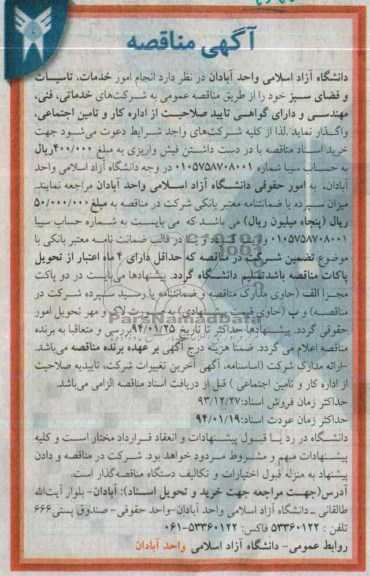 آگهی مناقصه
دانشگاه آزاد اسلامی واحد آبادان در نظر دارد انجام امور خدمات، تاسیسات
و فضای سبز خود را از طریق مناقصه عمومی به شرکت‌های خدماتی، فنی،
مهندسی و دارای گواهی تایید صلاحیت از اداره کار و تامین اجتماعی،
واگذار نماید .لذا از کلیه شرکت‌های واجد شرایط دعوت می‌شود جهت
خرید اسناد مناقصه با در دست داشتن فیش واریزی به مبلغ ۴۰۰/۰۰۰ریال
به حساب سیبا شماره ۰۱۰۵۷۵۸۷۰۸۰۰۱ در وجه دانشگاه آزاد اسلامی واحد
آبادان، به امور حقوقی دانشگاه آزاد اسلامی واحد آبادان مراجعه نمایند.
میزان سپرده یا ضمانتنامه معتبر بانکی شرکت در مناقصه به مبلغ ۵۰/۰۰۰/۰۰۰
ریال (پنجاه میلیون ریال) می باشد که می بایست به شماره حساب سیبا
۰۱۰۵۷۵۸۷۰۸۰۰۱ و یا در قالب ضمانت نامه معتبر بانکی با
موضوع تضمین شرکت در مناقصه که حداقل دارای ۴ ماه اعتبار از تحویل
پاکات مناقصه باشد تسلیم دانشگاه گردد. پیشنهادها می‌بایست در دو پاکت
مجزا الف (حاوی مدارک مناقصه و ضمانتنامه یا رسید سپرده شرکت در
مناقصه) و ب (حاوی پیشنهادی) به صورت لاک و مهر تحویل امور
حقوقی گردد. پیشنهادها حداکثر تا تاریخ ۹۴/۰۱/۲۵ بررسی و متعاقبا به برنده
مناقصه اعلام می گردد. ضمنا هزینه درج آگهی بر عهده برنده مناقصه می‌باشد.
-ارائه مدارک شرکت (اساسنامه، آگهی آخرین تغییرات شرکت، تاییدیه صلاحیت
از اداره کار و تامین اجتماعی ) قبل از دریافت اسناد مناقصه الزامی می‌باشد.
حداکثر زمان فروش اسناد:۹۳/۱۲/۲۷
حداکثر زمان عودت اسناد:۹۴/۰۱/۱۹
دانشگاه در رد یا قبول پیشنهادات و انعقاد قرارداد مختار است و کلیه
پیشنهادات مبهم و مشروط مردود خواهد بود. شرکت در مناقصه و دادن
پیشنهاد به منزله قبول اختیارات و تکالیف دستگاه مناقصه‌گذار است.
آدرس(جهت مراجعه جهت خرید و تحویل اسناد): آبادان- بلوار آیت‌الله
طالقانی -دانشگاه آزاد اسلامی واحد آبادان-واحد حقوقی- صندوق پستی۶۶۶
تلفن : ۵۳۳۶۰۱۲۲ فاکس: ۵۳۳۶۰۱۲۲-۰۶۱
روابط عمومی- دانشگاه آزاد اسلامی واحد آبادان
ParsNamadData